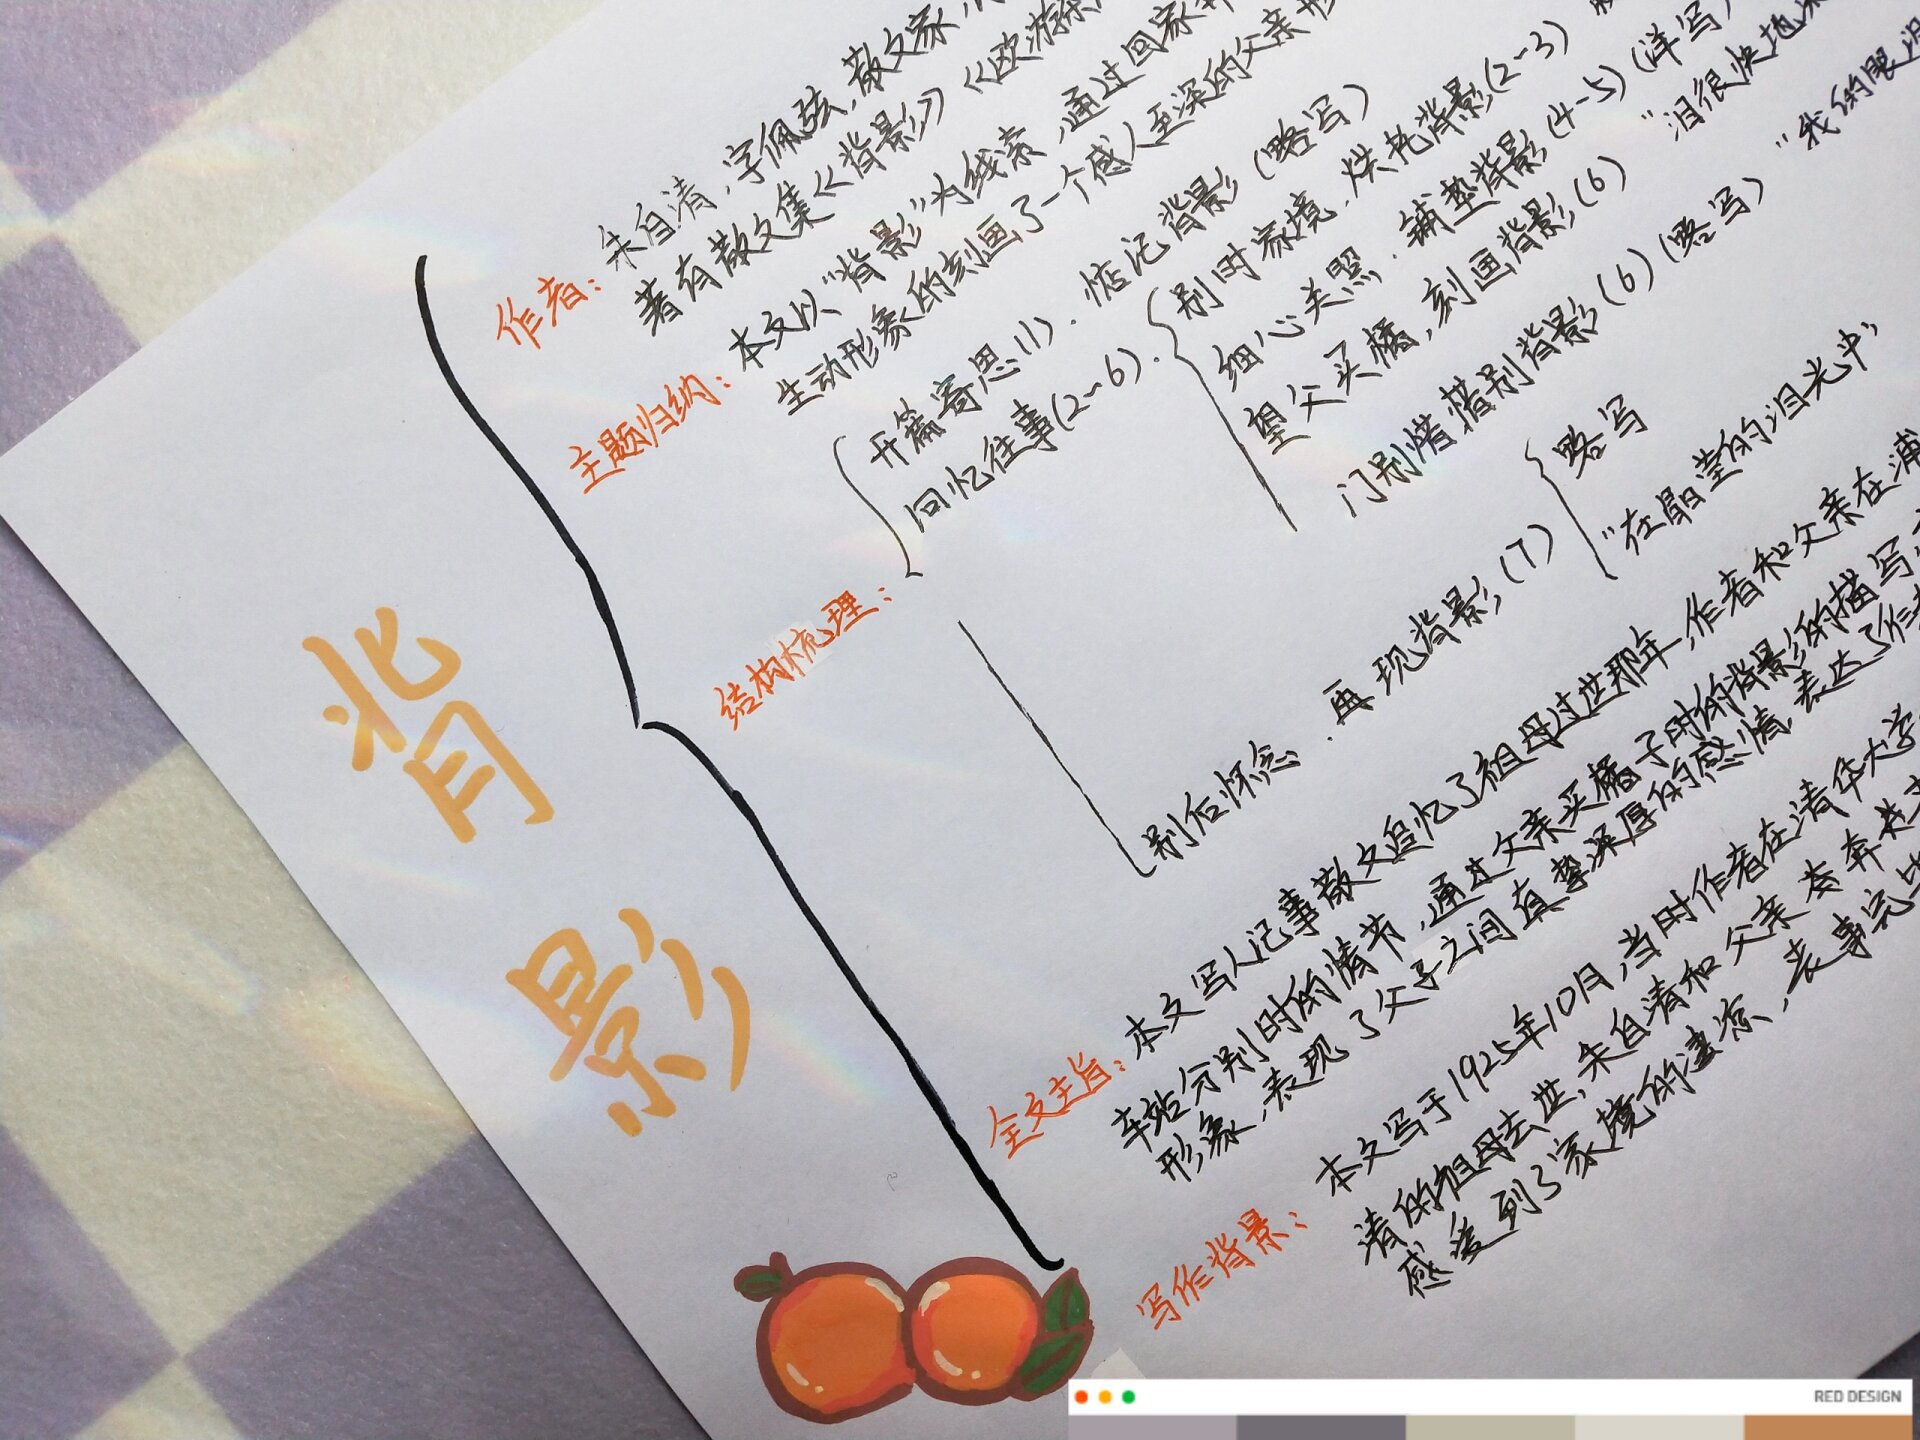 背影
作者：朱自清，字佩弦，散文家，
著有散文集《背影》《欧游杂
主题归纳：本文以“背影”为线索，通过回家
生动形象的刻画了一个感人至深的父亲形
结构梳理：
开篇寄思(1)．惦记背影（略写）
回忆往事(2~6)．
别时家境．烘托背影(2~3)
细心关照．铺垫背影(4~5)（详写，
望父买橘，刻画背影(6)
“泪很快地
“我的眼泪
门别惜惜别背影(6)（略写）
别后怀念．再现背影(7)
略写
“在晶莹的泪光中”
全文主旨：本文写人记事散文追忆了祖母过世那年，作者和父亲在浦
车站分别时的情节，通过父亲买橘子时的背影的描写
形象，表现了父子之间真挚深厚的感情，表达了作者
写作背景：本文写于1925年10月，当时作者在清华大学
清的祖母去世，朱自清和父亲去奔丧
感爱列了家境的凄凉，丧事完毕
RED DESIGN